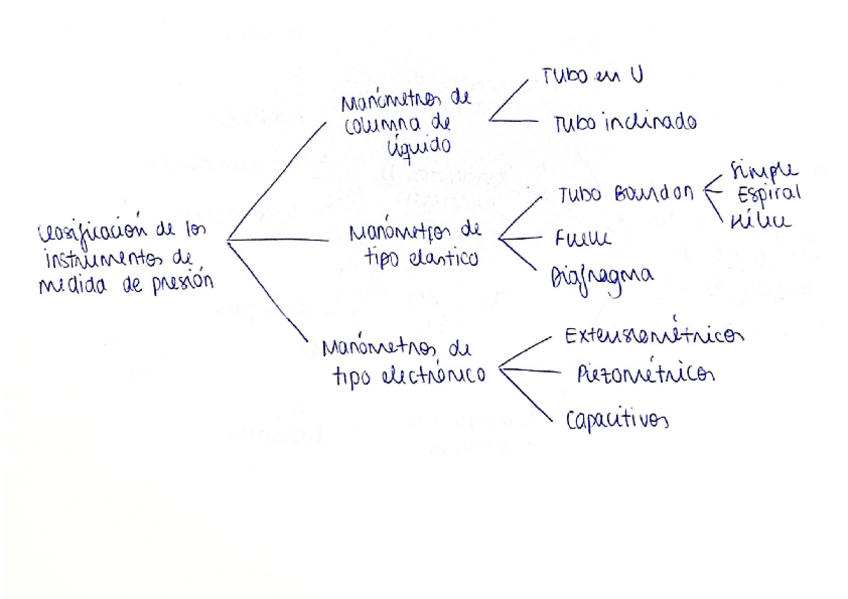 Clasificación de los
instrumentos de
medida de presión
Manómetros de
columna de
líquido
Tubo en U
Tubo inclinado
Manómetros de
tipo elastico
Tubo Bourdon
Simple
Espiral
Hélice
Fuelle
Diafragma
Manómetros de
tipo electrónico
Extensiométricos
Piezométricos
Capacitivos